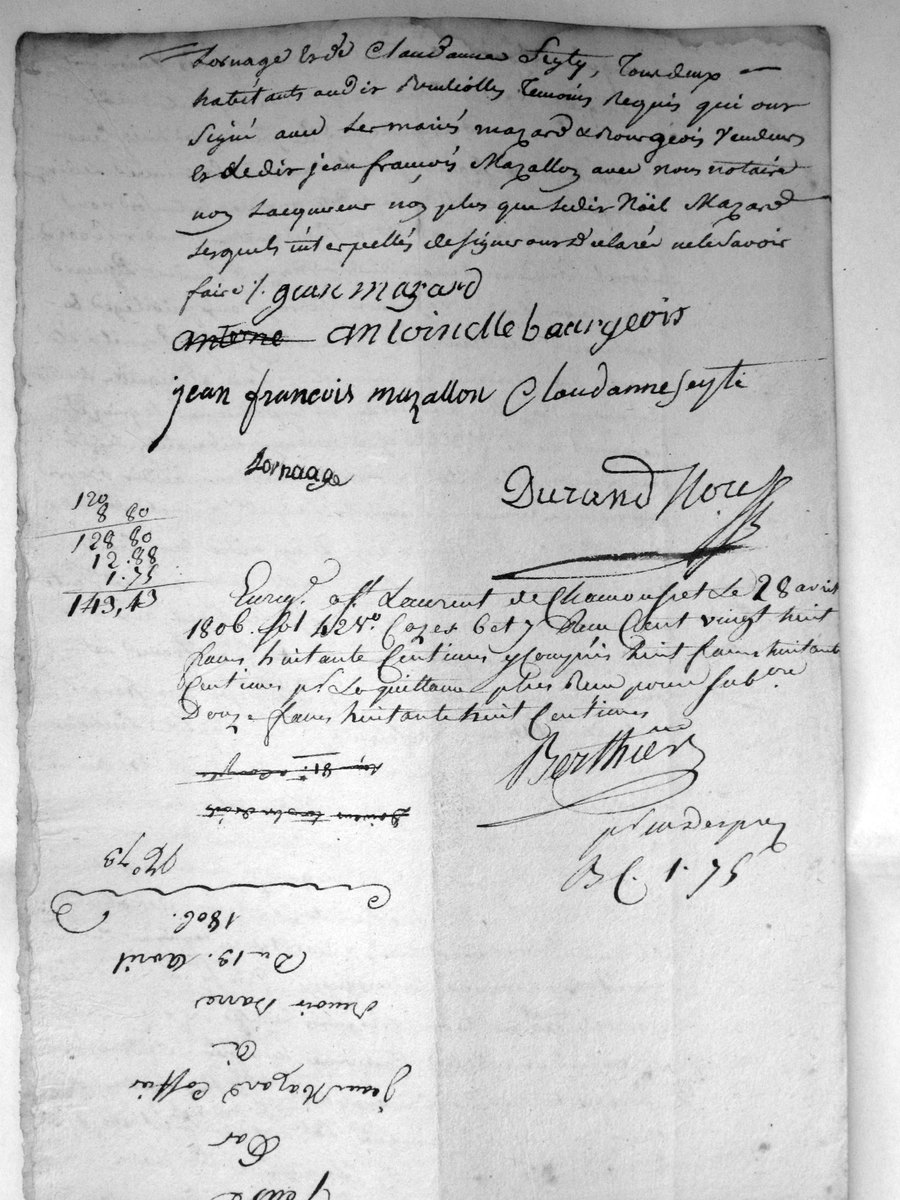 Lornage et de Claudanne Seyty, Tous deux
habitants audit Temoins Requis qui ont
Signé avec les mariés mazard & Bourgeois Vendeurs
et ledit jean françois Mazallon avec nous notaire
non Lacquereur non plus que Ledit Noël Mazard
Lesquels interpellés de signer ont Déclaré ne le Savoir
faire /. jean mazard
antone antoinette baurgeois
jean francois mazallon Claudanne seyti
Lornaage
Durand Nore
120
8 80
128 80
12.88
1.75
143,43
Enregé. a St. Laurent de Chamousset Le 28 avril
1806. fol 42 Vo. Cazes 6 et 7 Reçu Cent vingt huit
francs huitante Centimes y Compris huit francs huitante
Centimes pr. La quittance plus Reçu pour Subon
Douze francs huitante huit Centimes
Berthier
1.75
No 73
1806.
Du 19. avril
Benoit
a
jean Mazard
Par